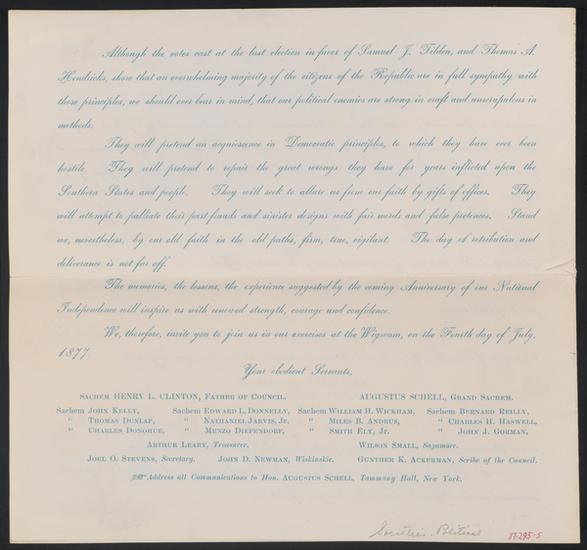 Although the votes cast at the last election in favor of Samuel J. Tilden, and Thomas A.
Hendricks, show that an overwhelming majority of the citizens of the Republic are in full sympathy with
those principles, we should ever bear in mind, that our political enemies are strong in craft and unscrupulous in
methods.
They will pretend an acquiescence in Democratic principles, to which they have ever been
hostile. They will pretend to repair the great wrongs they have for years inflicted upon the
Southern States and people. They will seek to allure us from our faith by gifts of offices. They
will attempt to palliate their past frauds and sinister designs with fair words and false pretences. Stand
we, nevertheless, by our old faith in the old paths, firm, true, vigilant. The day of retribution and
deliverance is not far off.
The memories, the lessons, the experience suggested by the coming Anniversary of our National
Independence will inspire us with renewed strength, courage and confidence.
We, therefore, invite you to join us in our exercises at the Wigwam, on the Fourth day of July,
1877.
Your obedient Servants,
Sachem HENRY L. CLINTON, Father of Council. AUGUSTUS SCHELL, Grand Sachem.
Sachem John Kelly, Sachem Edward L. Donnelly, Sachem William H. Wickham, Sachem Bernard Reilly,
" Thomas Dunlap, " Nathaniel Jarvis, Jr. " Miles B. Andrus, " Charles H. Haswell,
" Charles Donohue, " Munzo Diefendorf, " Smith Ely, Jr. " John J. Gorman,
Arthur Leary, Treasurer. Wilson Small, Sagamore.
Joel O. Stevens, Secretary. John D. Newman, Wiskinskie. Gunther K. Ackerman, Scribe of the Council.
☞ Address all Communications to Hon. Augustus Schell, Tammany Hall, New York.
Societies - Political
37-295-5